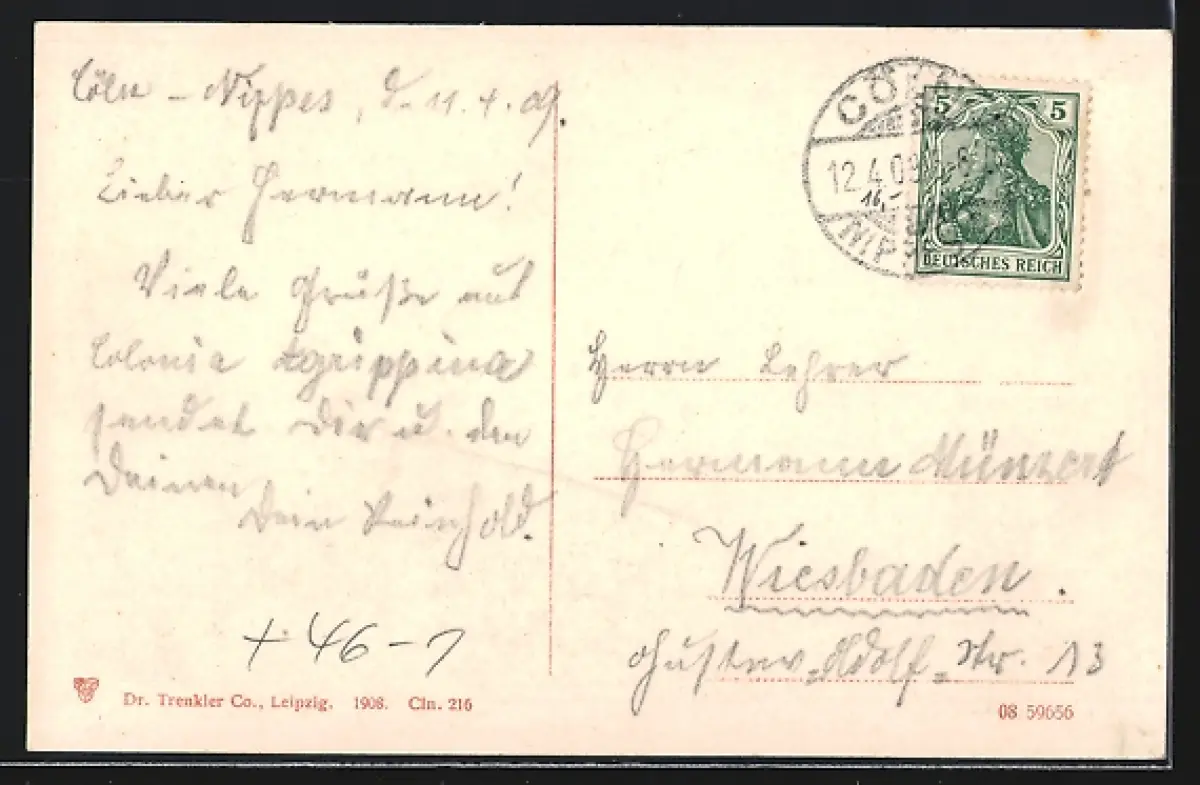 Cöln - Nippes, d. 11.4.09.
Lieber Hermann!
Viele Grüße aus
Colonia Agrippina
sendet Dir u. den
Deinen
Dein Reinhold.
+ 46-1
Dr. Trenkler Co., Leipzig. 1908. Cln. 216
CÖLN
12.4.09
NIPPES
5 5
DEUTSCHES REICH
Herrn Lehrer
Hermann Münzert
Wiesbaden.
Gustav-Adolf-Str. 13
08 59656